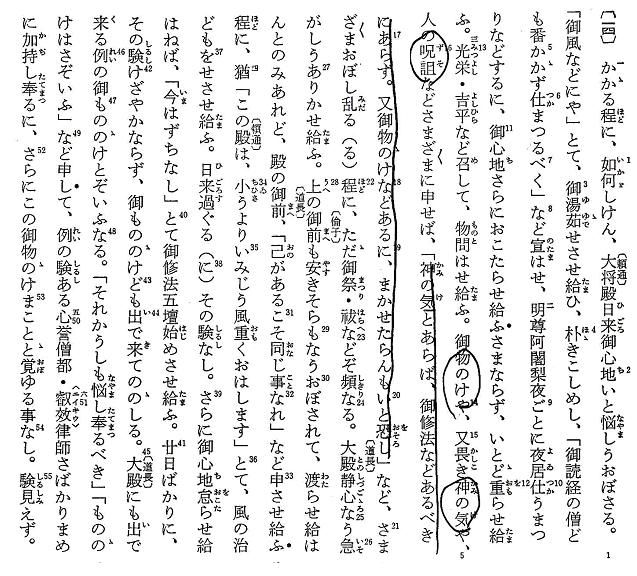 〔一四〕 かかる程に、如何しけん、大将殿日来御心地いと悩しうおぼさる。
「御風などにや」とて、御湯茹せさせ給ひ、朴きこしめし、「御読経の僧ど
も番かかず仕まつるべく」など宣はせ、明尊阿闍梨夜ごとに夜居仕うまつ
りなどするに、御心地さらにおこたらせ給ふさまならず、いとど重らせ給
ふ。光栄・吉平など召して、物問はせ給ふ。御物のけや、又畏き神の気や、
人の呪詛などさまざまに申せば、「神の気とあらば、御修法などあるべき
にあらず。又御物のけなどあるに、まかせたらんもいと恐し」など、さま
ざまおぼし乱る(る)程に、ただ御祭・祓などぞ頻なる。大殿静心なう急
がしうありかせ給ふ。上の御前も安きそらもなうおぼされて、渡らせ給は
んとのみあれど、殿の御前、「己があるこそ同じ事なれ」など申させ給ふ
程に、猶「この殿は、小うよりいみじう風重くおはします」とて、風の治
どもをせさせ給ふ。日来過ぐる(に)その験なし。さらに御心地怠らせ給
はねば、「今はずちなし」とて御修法五壇始めさせ給ふ。廿日ばかりに、
その験けざやかならず、御もののけども出で来てののしる。大殿にも出で
来る例の御もののけとぞいふなる。「それかうしも悩し奉るべき」「ものの
けはさぞいふ」など申して、例の験ある心誉僧都・叡效律師さばかりまめ
に加持し奉るに、さらにこの御物のけまことと覚ゆる事なし。験見えず。